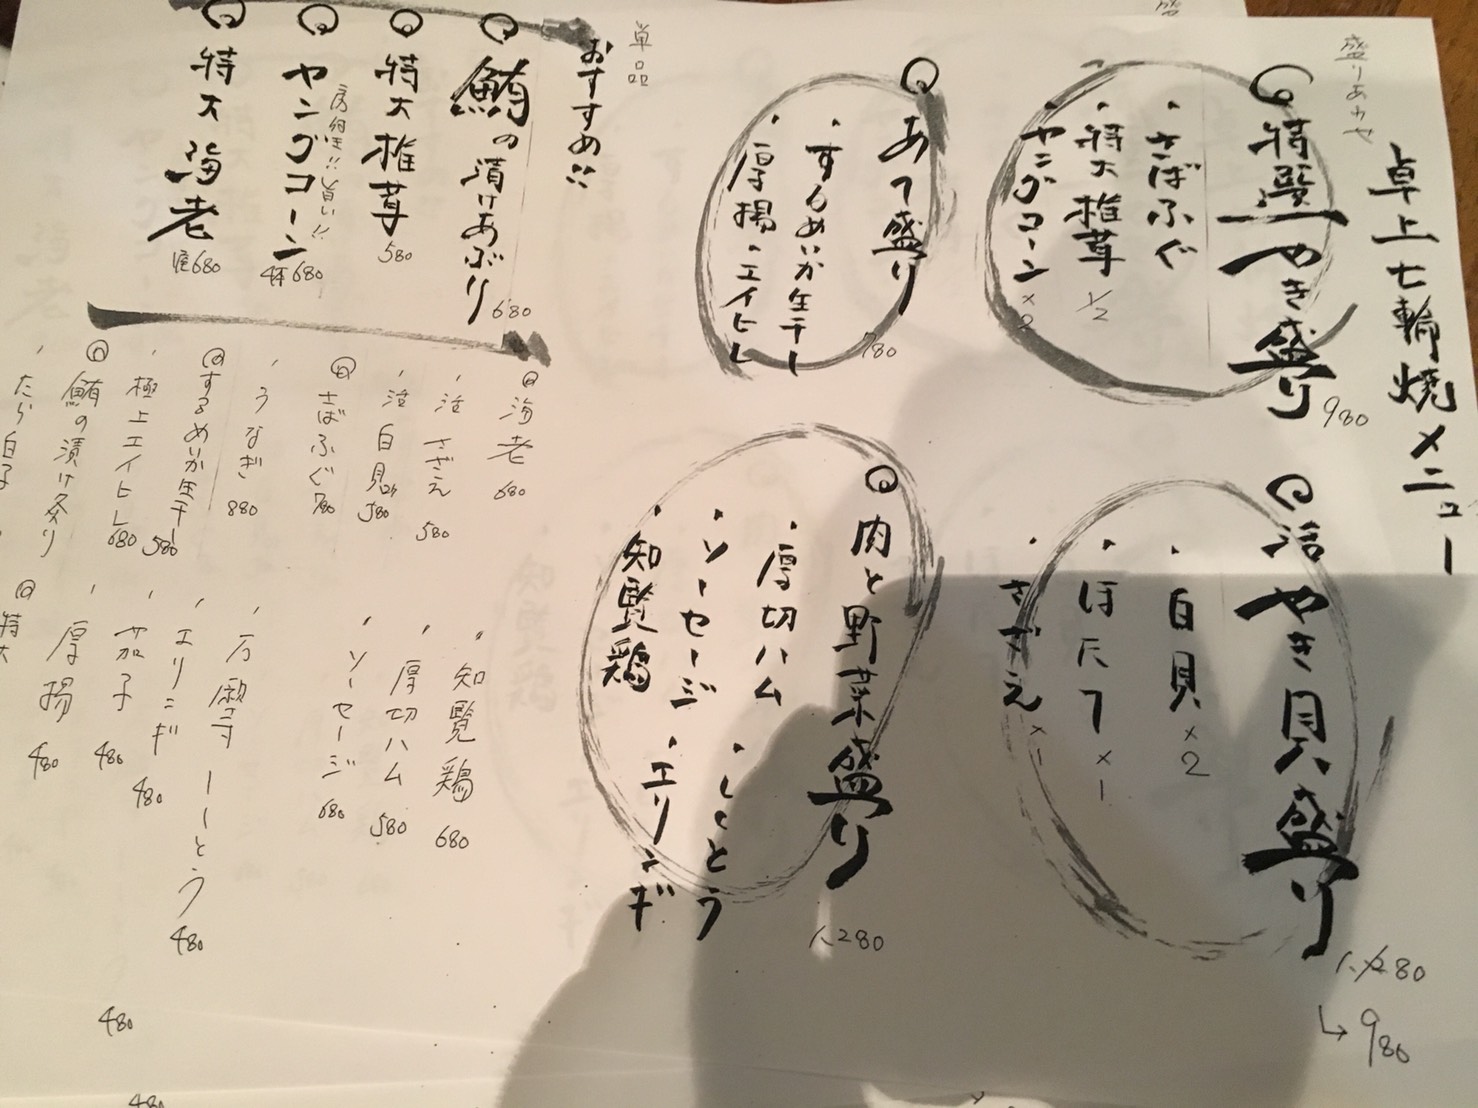 卓上七輪焼メニュー
盛りあわせ
特選やき盛り 980
・さばふぐ
・特大椎茸 1/2
・ヤングコーン ×2
活やき貝盛り 1,280 → 980
・白貝 ×2
・ほたて ×1
・さざえ ×1
あて盛り 780
・するめいか生干し
・厚揚・エイヒレ
肉と野菜盛り 1,280
・厚切ハム
・ソーセージ・ししとう
・知覧鶏・エリンギ
単品
おすすめ!!
鮪の漬けあぶり 680
特大椎茸 580
ヤングコーン 4本680
旨い!!
特大海老 680
海老 680
・活さざえ 580
・活白貝 580
さばふぐ 780
・うなぎ 880
するめいか生干し 580
・極上エイヒレ 680
鮪の漬け炙り
・たら白子
・知覧鶏 680
・厚切ハム 580
・ソーセージ 680
・万願寺ししとう 480
・エリンギ 480
・茄子 480
・厚揚 480
特大
480
480